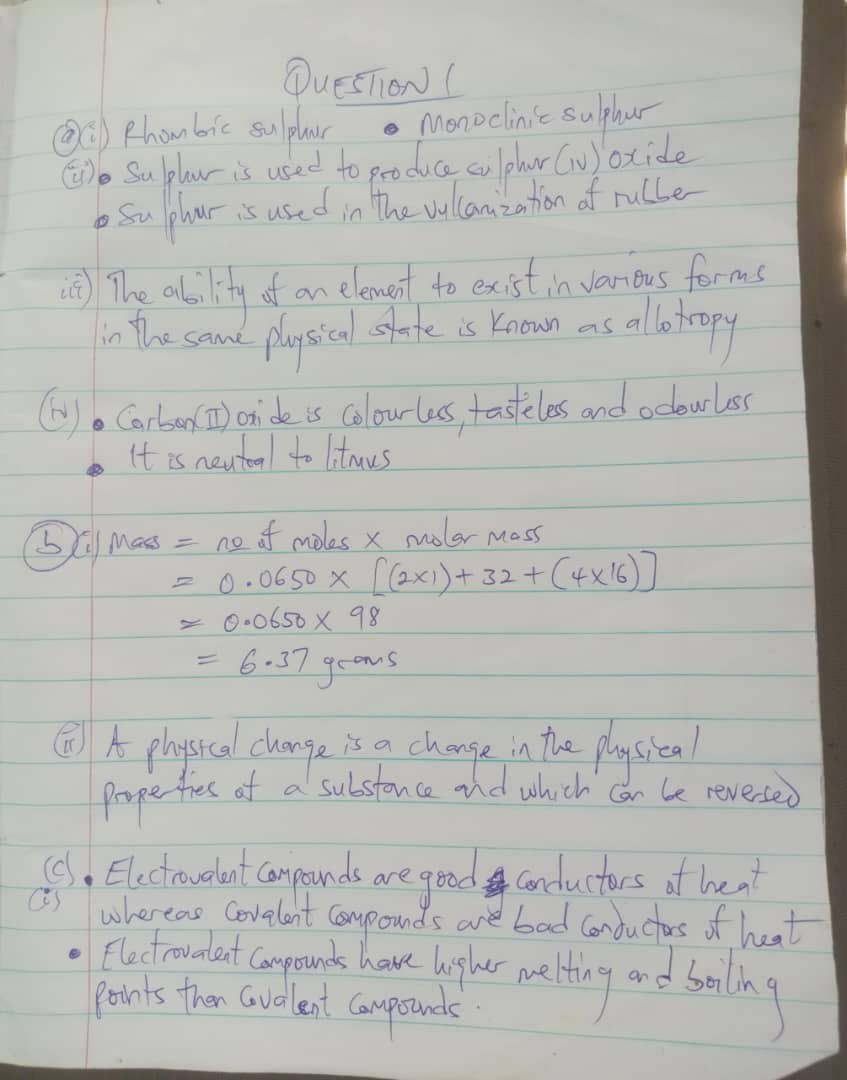 QUESTION 1
(a)(i) Rhombic sulphur • Monoclinic sulphur
(ii) • Sulphur is used to produce sulphur (iv) oxide
• Sulphur is used in the vulcanization of rubber
iii) The ability of an element to exist in various forms
in the same physical state is known as allotropy
(iv) • Carbon(II) oxide is colourless, tasteless and odourless
• It is neutral to litmus
(b)(i) Mass = no of moles × molar mass
= 0.0650 × [(2×1)+32+(4×16)]
= 0.0650 × 98
= 6.37 grams
(ii) A physical change is a change in the physical
properties of a substance and which can be reversed
(c) • Electrovalent compounds are good conductors of heat
(i) whereas covalent compounds are bad conductors of heat
• Electrovalent compounds have higher melting and boiling
points than covalent compounds.